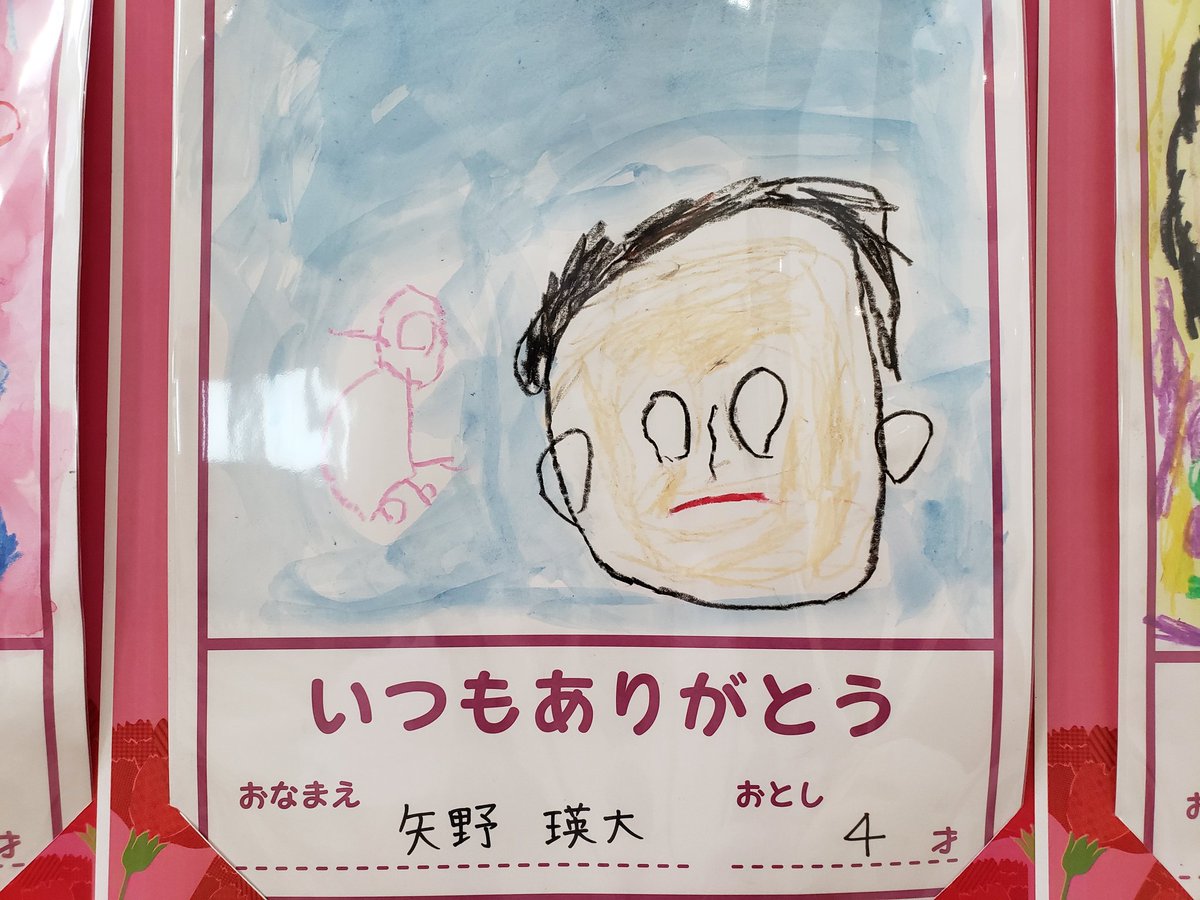 いつもありがとう
おなまえ 矢野 瑛大 おとし 4 才
才
お